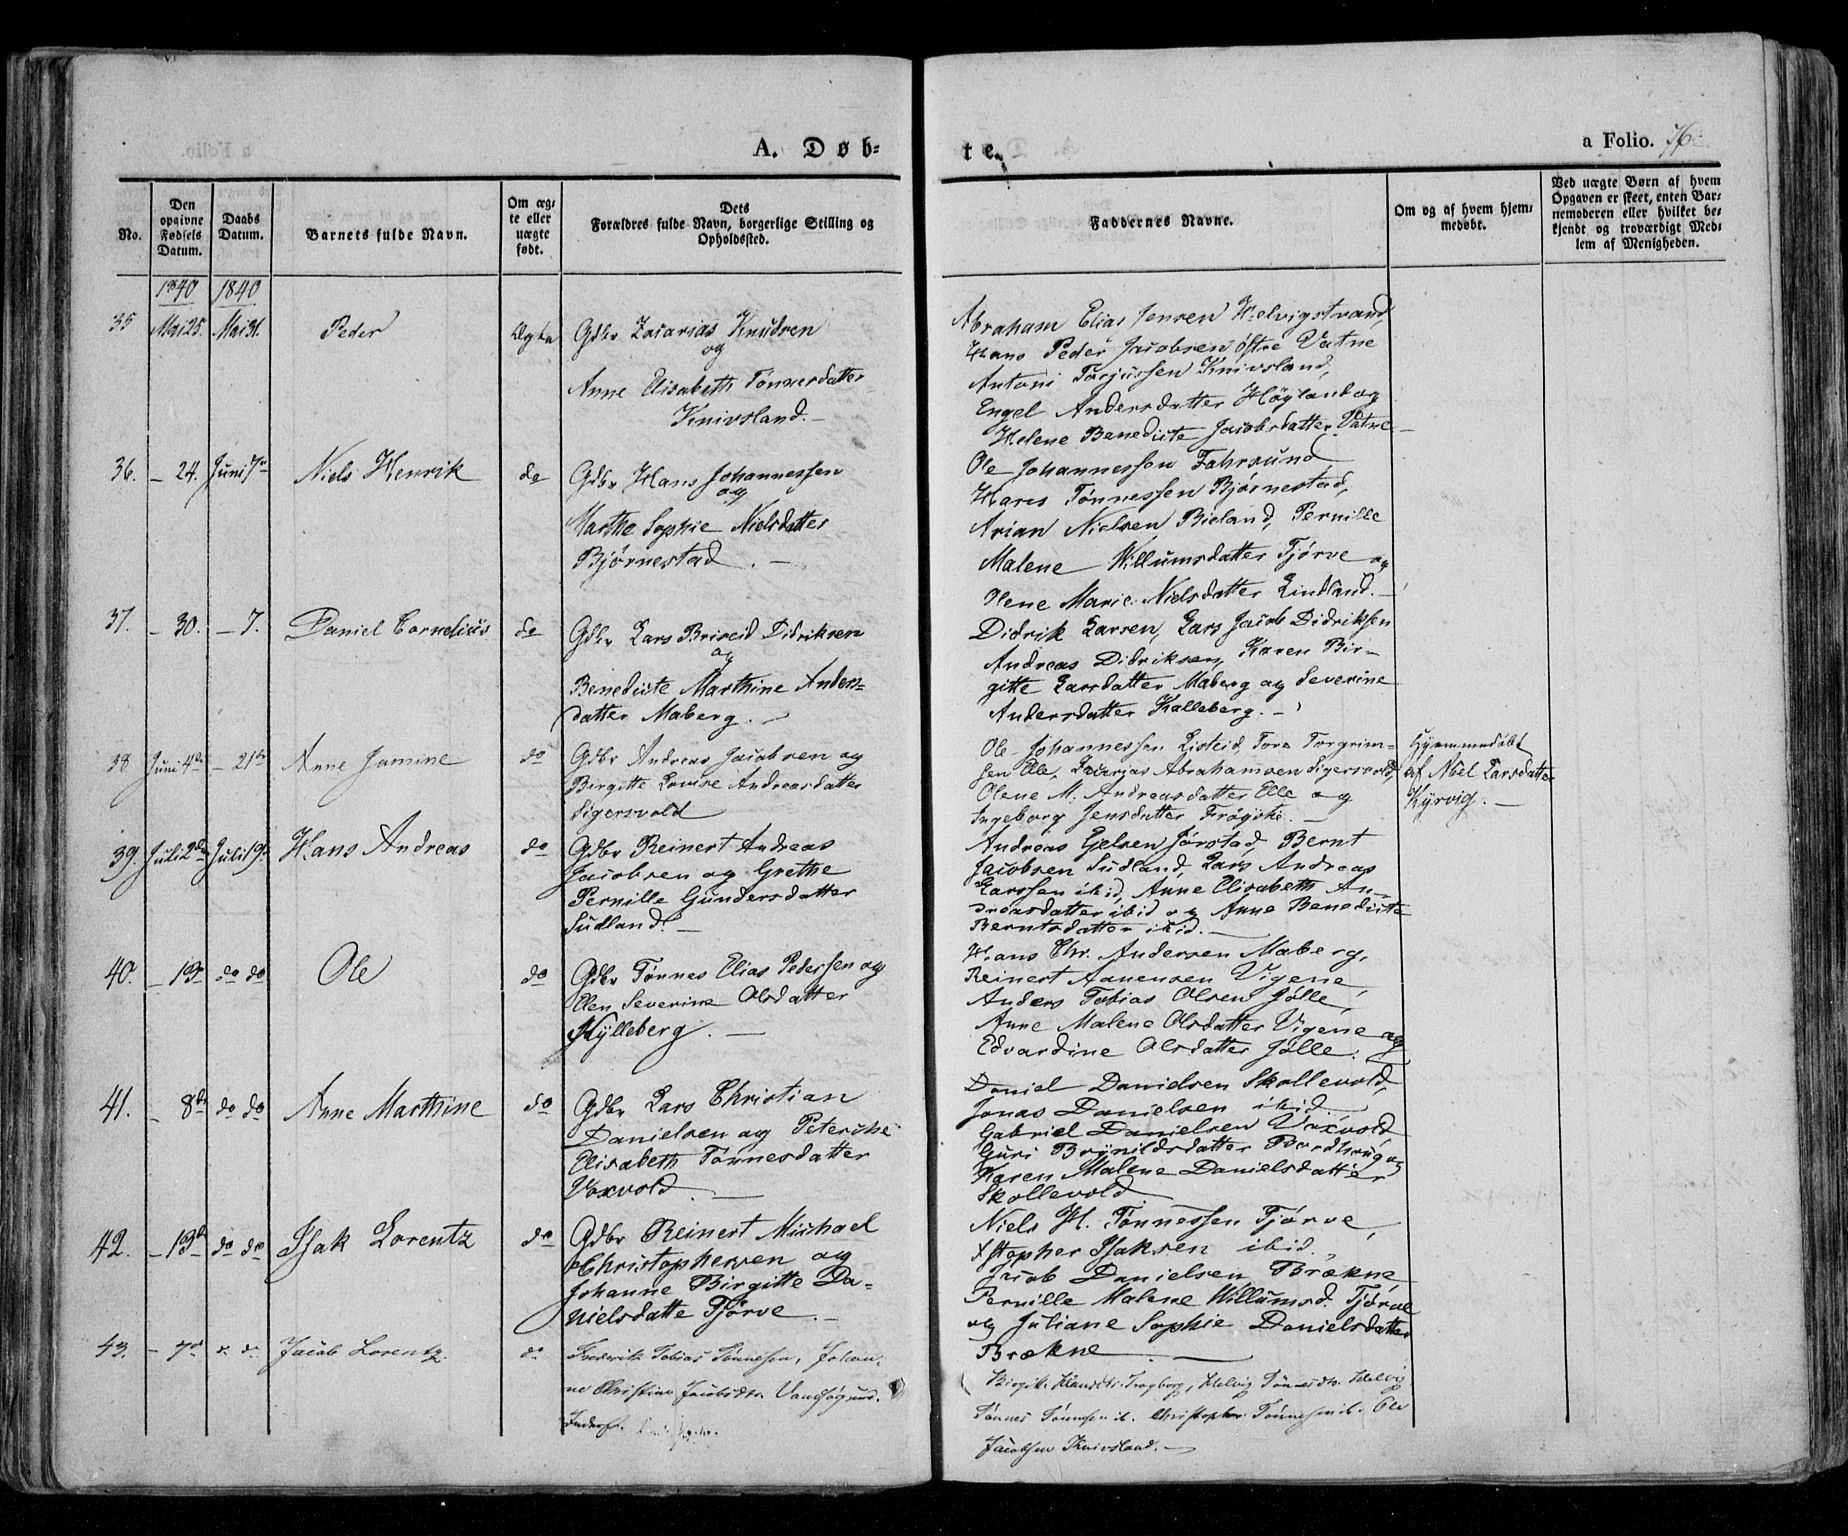 A. Døb-
te.
a Folio. 76
No.
Den opgivne Fødsels Datum.
Daabs Datum.
Barnets fulde Navn.
Om ægte eller uægte født.
Dets Forældres fulde Navn, borgerlige Stilling og Opholdssted.
Faddernes Navne.
Om og af hvem hjemmedøbt.
Ved uægte Børn af hvem Opgaven er skeet, enten Barnemoderen eller hvilket bekjendt og troværdigt Medlem af Menigheden.
1840 1840
35 Mai 25. Mai 31. Peder Ægte Gdbr Zacarias Knudsen
og
Anne Elisabeth Tønnesdatter
Knivsland. —
Abraham Elias Jensen Helvigstrand,
Hans Peder Jacobsen østre Vatne
Antoni Torjussen Knivsland,
Engel Andersdatter Høyland og
Helene Benedicte Jacobsdatter Vatne
36. — 24. Juni 7de Niels Henrik do Gdbr Hans Johannessen
og
Marthe Sophie Nielsdatter
Bjørnestad. —
Ole Johannessen Fahrsund
Hans Tønnessen Bjørnestad,
Arian Nielsen Bieland, Pernille
Malene Willumsdatter Tjørve og
Olene Marie Nielsdatter Lindland. —
37. — 30. — 7. Daniel Cornelius do Gdbr Lars Briseid Didriksen
og
Benedicte Marthine Anders-
datter Maberg. —
Didrik Larsen, Lars Jacob Didriksen
Andreas Didriksen, Karen Bir-
gitte Larsdatter Maberg og Severine
Andersdatter Kalleberg. —
38 Juni 4de — 21de Anne Jamine do Gdbr Andreas Jacobsen og
Birgitte Lovise Andreasdatter
Sigersvold
Ole Johannessen Listeid, Tore Torgrim-
sen Elle, Zacarias Abrahamsen Sigersvold,
Olene M. Andreasdatter Elle og
Ingeborg Jensdatter Frøyste. —
Hjemmedøbt
af Abel Larsdatter
Kyrvig. —
39. Juli 2de Juli 19. Hans Andreas do Gdbr Reinert Andreas
Jacobsen og Grethe
Pernille Gundersdatter
Sudland. —
Andreas Gelsen Jørstad, Bernt
Jacobsen Sudland, Lars Andreas
Larssen ibid, Anne Elisabeth An-
dreasdatter ibid og Anne Benedicte
Berntsdatter ibid. —
40. — 13 do do Ole do Gdbr Tønnes Elias Pedersen og
Elen Severine Olsdatter
Hylleberg. —
Hans Chr. Andersen Maberg,
Reinert Aanensen Vigene,
Anders Tobias Olsen Jølle,
Anne Malene Olsdatter Vigene og
Edvardine Olsdatter Jølle.
41. — 8de do do Anne Marthine do Gdbr Lars Christian
Danielsen og Peterche
Elisabeth Tønnesdatter
Voxvold. —
Daniel Danielsen Skollevold,
Jonas Danielsen ibid
Gabriel Danielsen Voxvold
Guri Brynildsdatter Bordhoug og
Karen Malene Danielsdatter
Skollevold
42. — 13de do do Isak Lorentz do Gdbr Reinert Michael
Christophersen og
Johanne Birgitte Da-
nielsdatte Tjørve. —
Niels H. Tønnessen Tjørve,
Xstopher Isaksen ibid.,
Jacob Danielsen Brækne,
Pernille Malene Willumsd. Tjørve
og Juliane Sophie Danielsdatter
Brækne —
43. — 7de do do Jacob Lorentz. do Frederik Tobias Tønnesen, Johan-
ne Christine Jacobsdtr. Vandsøgund.
Inderst.
Birgitte Tønnesdtr. Helvig
Tønnes Tønnesen ib. Christopher Tønnesen ib. Ole
Jacobsen Knivsland. —